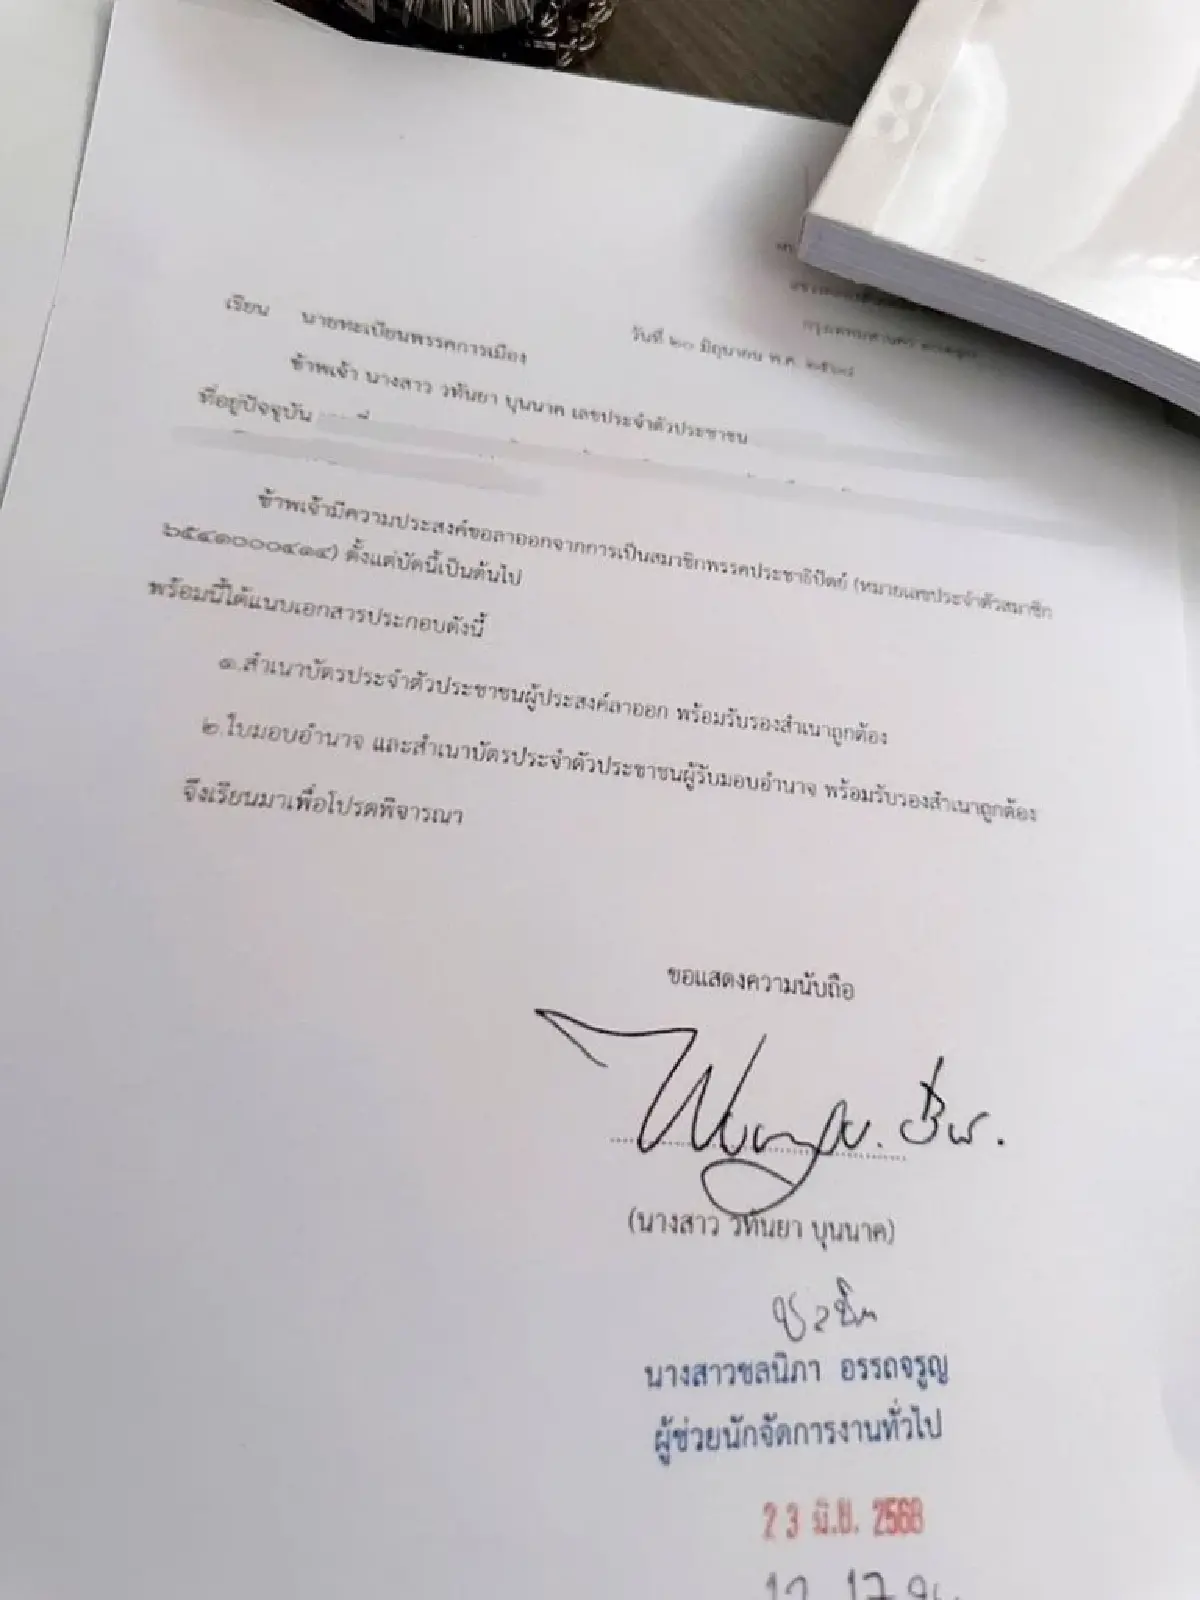 กรุงเทพมหานคร
วันที่ ๒๐ มิถุนายน พ.ศ. ๒๕๖๘
เรียน นายทะเบียนพรรคการเมือง
ข้าพเจ้า นางสาว วทันยา บุนนาค เลขประจำตัวประชาชน
ที่อยู่ปัจจุบัน
ข้าพเจ้ามีความประสงค์ขอลาออกจากการเป็นสมาชิกพรรคประชาธิปัตย์ (หมายเลขประจำตัวสมาชิก
๖๕๔๑๐๐๐๙๑๔) ตั้งแต่บัดนี้เป็นต้นไป
พร้อมนี้ได้แนบเอกสารประกอบดังนี้
๑.สำเนาบัตรประจำตัวประชาชนผู้ประสงค์ลาออก พร้อมรับรองสำเนาถูกต้อง
๒.ใบมอบอำนาจ และสำเนาบัตรประจำตัวประชาชนผู้รับมอบอำนาจ พร้อมรับรองสำเนาถูกต้อง
จึงเรียนมาเพื่อโปรดพิจารณา
ขอแสดงความนับถือ
(นางสาว วทันยา บุนนาค)
นางสาวชลนิภา อรรถจรูญ
ผู้ช่วยนักจัดการงานทั่วไป
23 มิ.ย. 2568